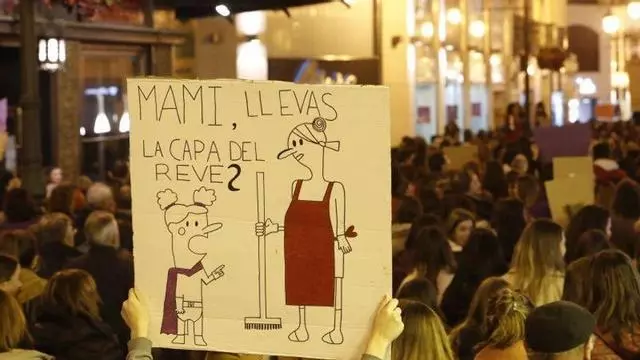 MAMI, LLEVAS
LA CAPA DEL
REVES